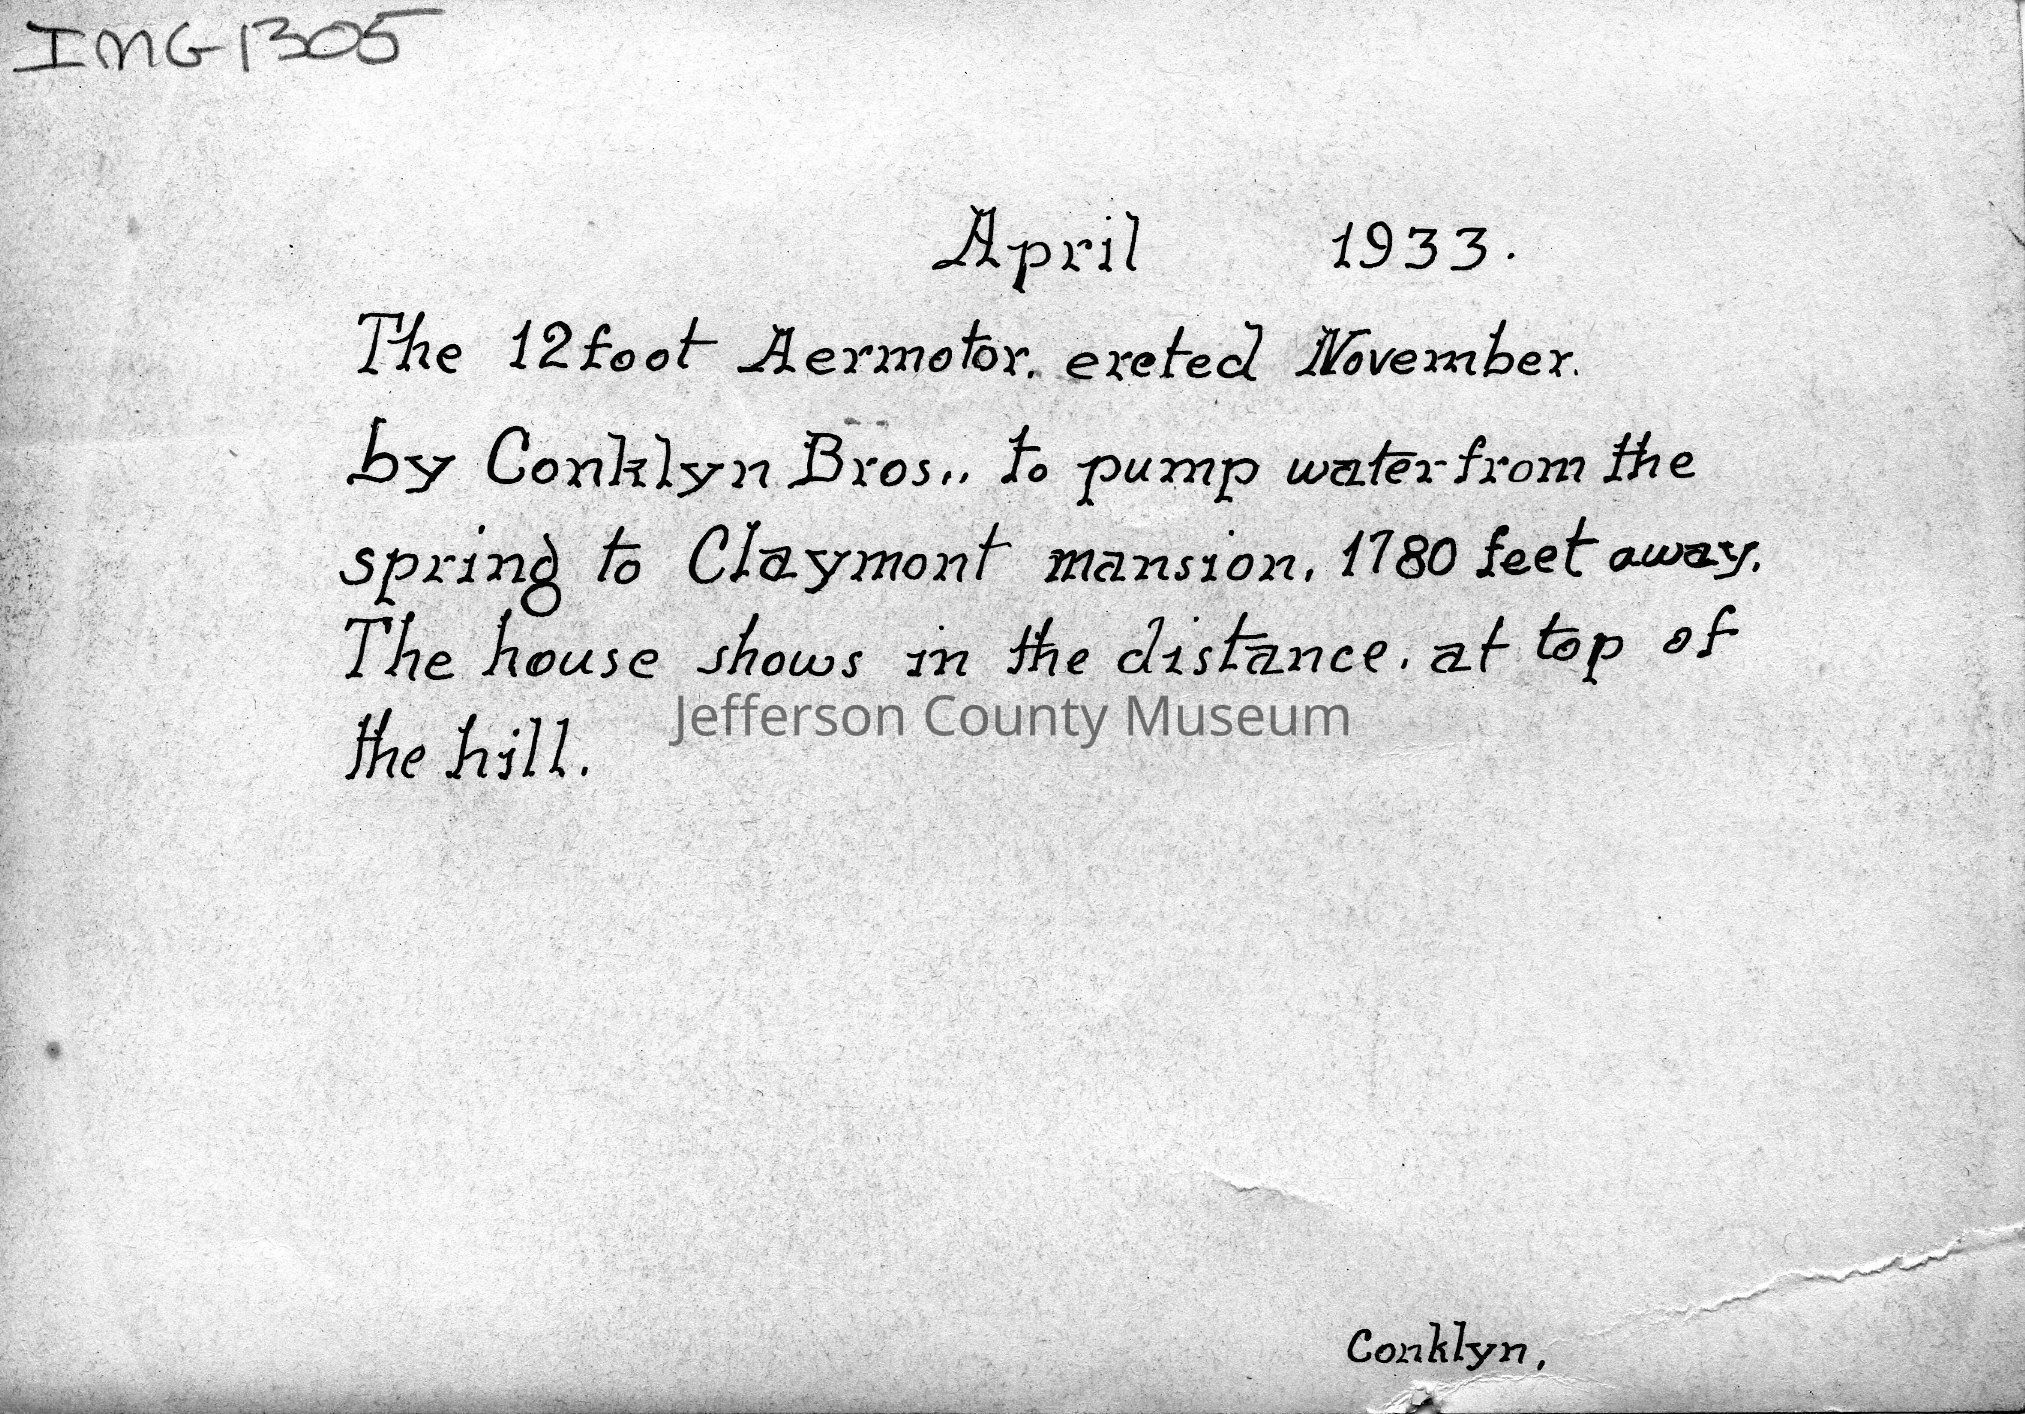 IMG1305
April 1933.
The 12 foot Aermotor. ereted November.
by Conklyn Bros., to pump water from the
spring to Claymont mansion, 1780 feet away.
The house shows in the distance. at top of
the hill.
Jefferson County Museum
Conklyn.